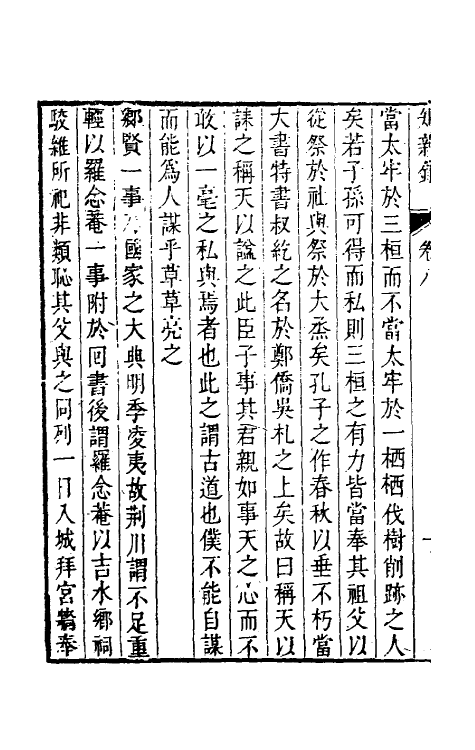 卷八
當太牢於三桓而不當太牢於一栖栖伐樹削跡之人
矣若子孫可得而私則三桓之有力皆當奉其祖父以
從祭於社與祭於大烝矣孔子之作春秋以垂不朽當
大書特書叔紇之名於鄭僑吳札之上矣故曰稱天以
誄之稱天以諡之此臣子事其君親如事天之心而不
敢以一毫之私與焉者也此之謂古道也僕不能自謀
而能為人謀乎草草亮之
鄉賢一事國家之大典明季凌夷故荆川謂不足重
輕以羅念菴一事附於回書後謂羅念菴以吉水鄉祠
駁雜所祀非類恥其父與之同列一日入城拜宮牆奉